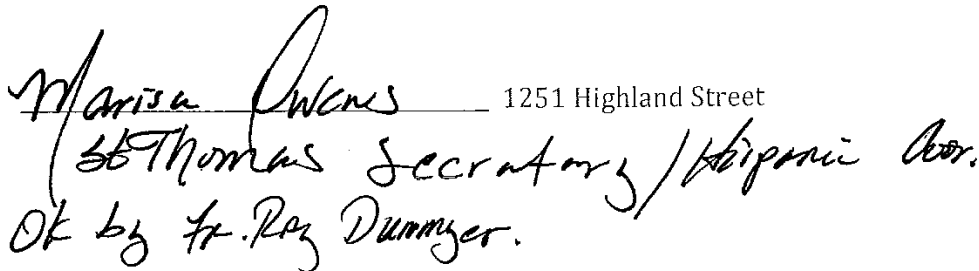 Marisa Owens 1251 Highland Street
St Thomas Secretary / Hispanic Coor.
Ok by Fr. Ray Dummyer.